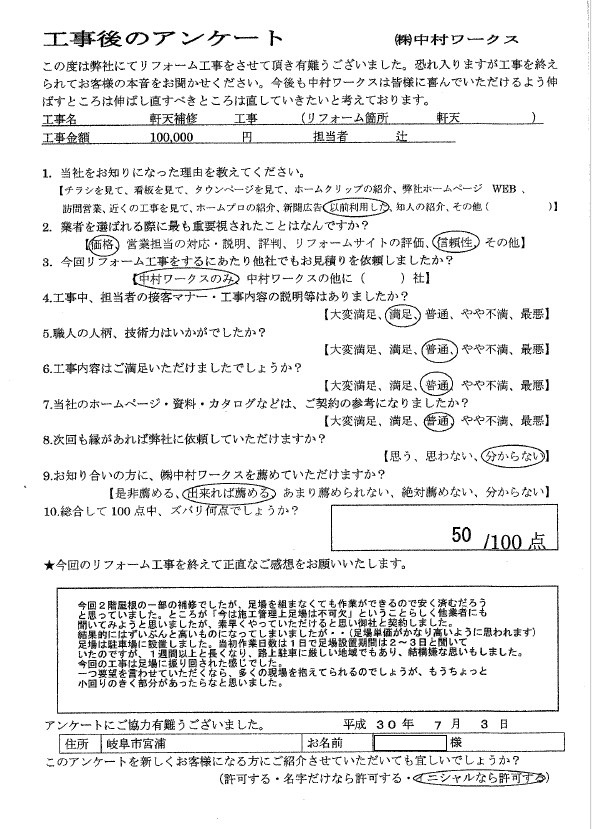 工事後のアンケート ㈱中村ワークス
この度は弊社にてリフォーム工事をさせて頂き有難うございました。恐れ入りますが工事を終え
られてお客様の本音をお聞かせください。今後も中村ワークスは皆様に喜んでいただけるよう伸
ばすところは伸ばし直すべきところは直していきたいと考えております。
工事名 軒天補修 工事 (リフォーム箇所 軒天 )
工事金額 100,000 円 担当者 辻
1. 当社をお知りになった理由を教えてください。
【チラシを見て、看板を見て、タウンページを見て、ホームクリップの紹介、弊社ホームページ WEB、
訪問営業、近くの工事を見て、ホームプロの紹介、新聞広告、以前利用した、知人の紹介、その他( )】
2. 業者を選ばれる際に最も重要視されたことはなんですか?
【価格、営業担当の対応・説明、評判、リフォームサイトの評価、信頼性、その他】
3. 今回リフォーム工事をするにあたり他社でもお見積りを依頼しましたか?
【中村ワークスのみ、中村ワークスの他に( )社】
4.工事中、担当者の接客マナー・工事内容の説明等はありましたか?
【大変満足、満足、普通、やや不満、最悪】
5.職人の人柄、技術力はいかがでしたか?
【大変満足、満足、普通、やや不満、最悪】
6.工事内容はご満足いただけましたでしょうか?
【大変満足、満足、普通、やや不満、最悪】
7.当社のホームページ・資料・カタログなどは、ご契約の参考になりましたか?
【大変満足、満足、普通、やや不満、最悪】
8.次回も縁があれば弊社に依頼していただけますか?
【思う、思わない、分からない】
9.お知り合いの方に、㈱中村ワークスを薦めていただけますか?
【是非薦める、出来れば薦める、あまり薦められない、絶対薦めない、分からない】
10.総合して100点中、ズバリ何点でしょうか?
50 /100点
★今回のリフォーム工事を終えて正直なご感想をお願いいたします。
今回2階屋根の一部の補修でしたが、足場を組まなくても作業ができるので安く済むだろう
と思っていました。ところが「今は施工管理上足場は不可欠」ということらしく他業者にも
聞いてみようと思いましたが、素早くやっていただけると思い御社と契約しました。
結果的にはずいぶんと高いものになってしまいましたが・・(足場単価がかなり高いように思われます)
足場は駐車場に設置しました。当初作業日数は1日で足場設置期間は2～3日と聞いて
いたのですが、1週間以上と長くなり、路上駐車に厳しい地域でもあり、結構嫌な思いもしました。
今回の工事は足場に振り回された感じでした。
一つ要望を言わせていただくなら、多くの現場を抱えてられるのでしょうが、もうちょっと
小回りのきく部分があったらなと思いました。
アンケートにご協力有難うございました。 平成 30年 7月 3日
住所 岐阜市宮浦 お名前 様
このアンケートを新しくお客様になる方にご紹介させていただいても宜しいでしょうか?
(許可する・名字だけなら許可する・イニシャルなら許可する)